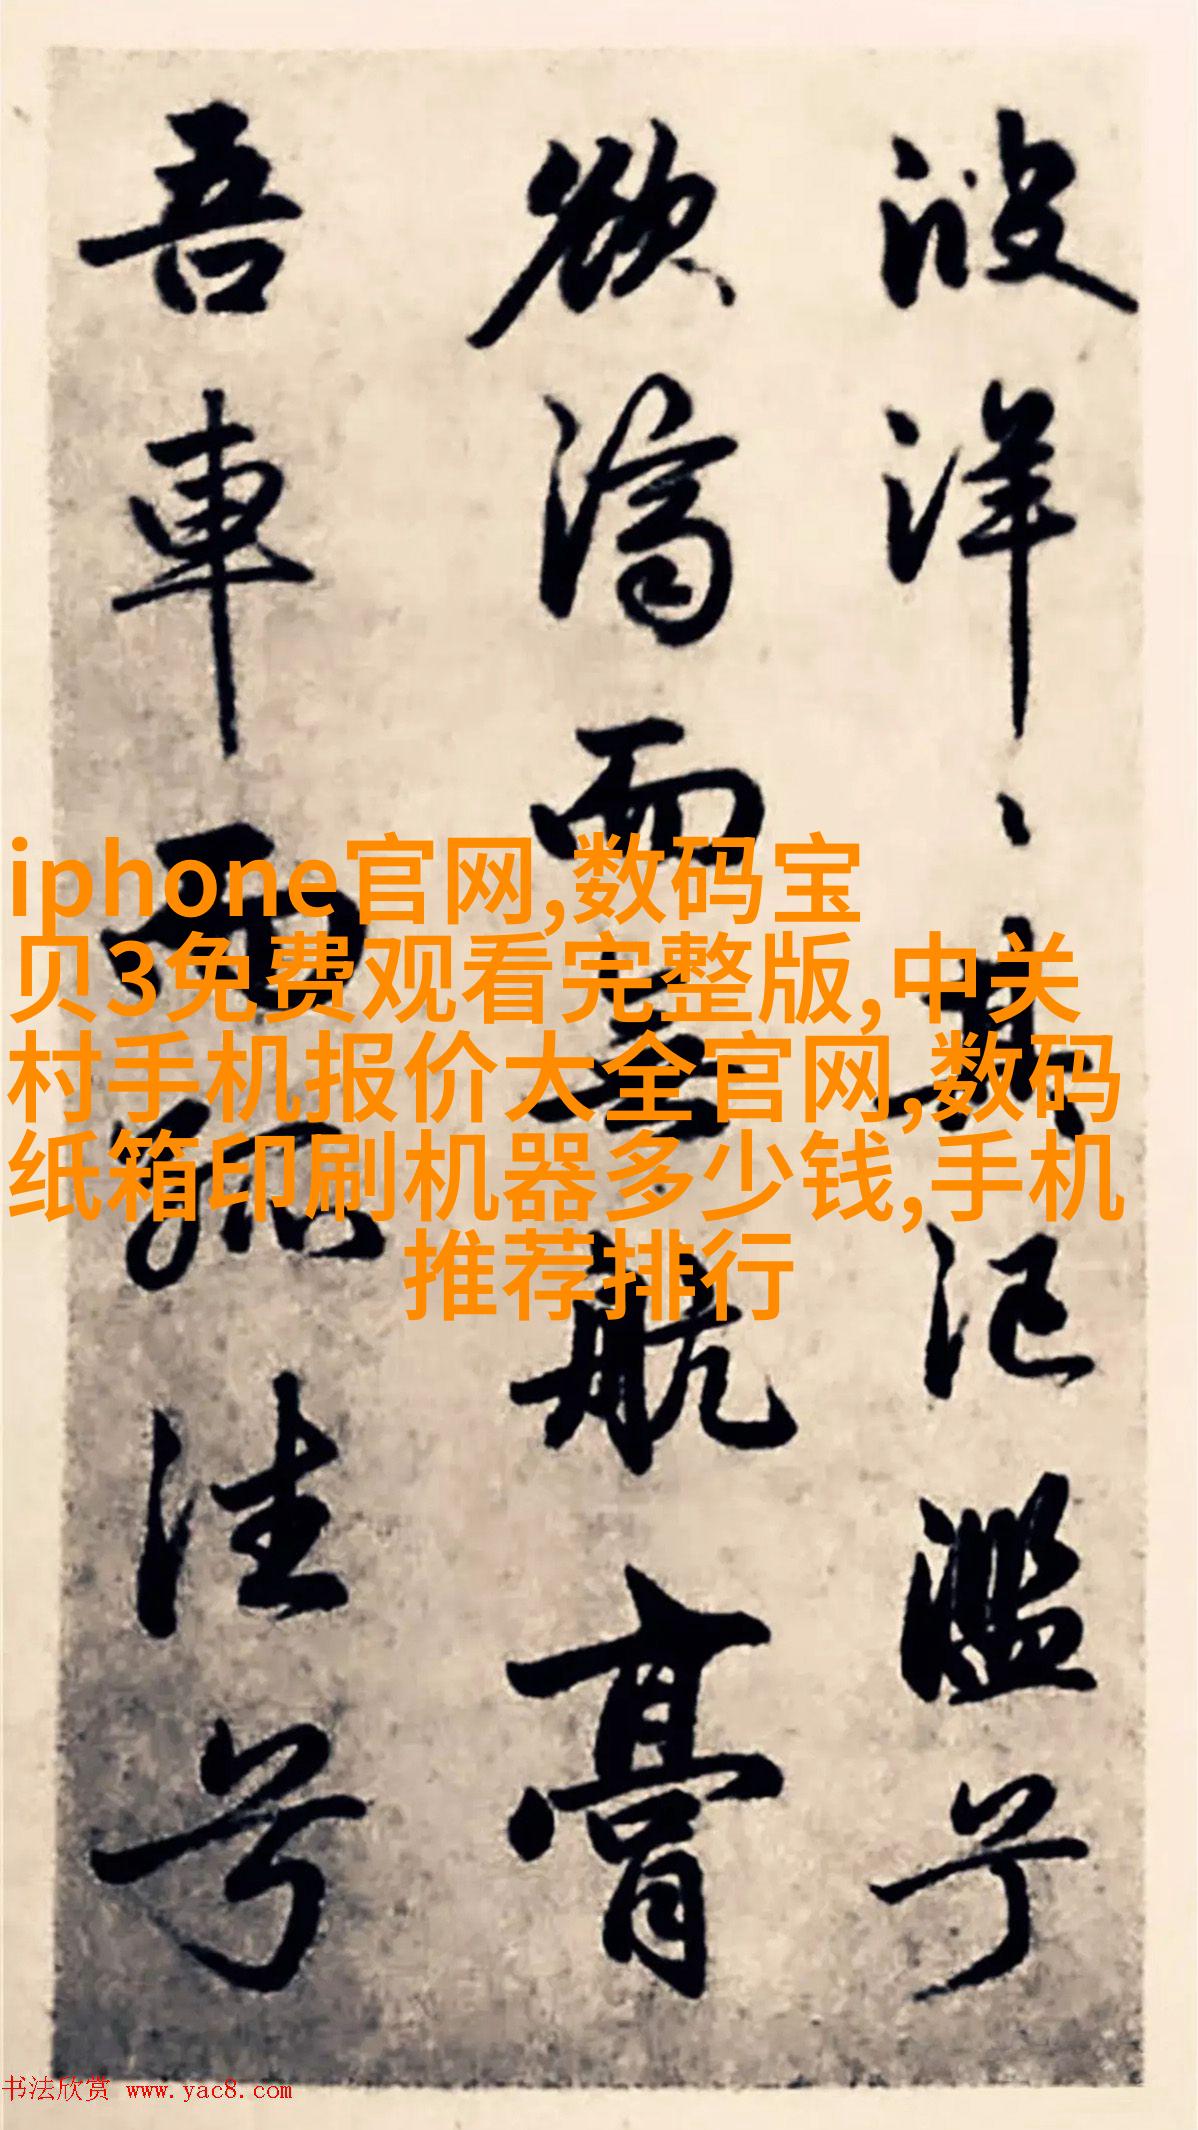 波洋々其氾濫兮
欲濟而無航膏
吾車而孤往兮
iphone官网,数码宝
贝3免费观看完整版,中关
村手机报价大全官网,数码
纸箱印刷机器多少钱,手机
推荐排行
书法欣赏 www.yac8.com